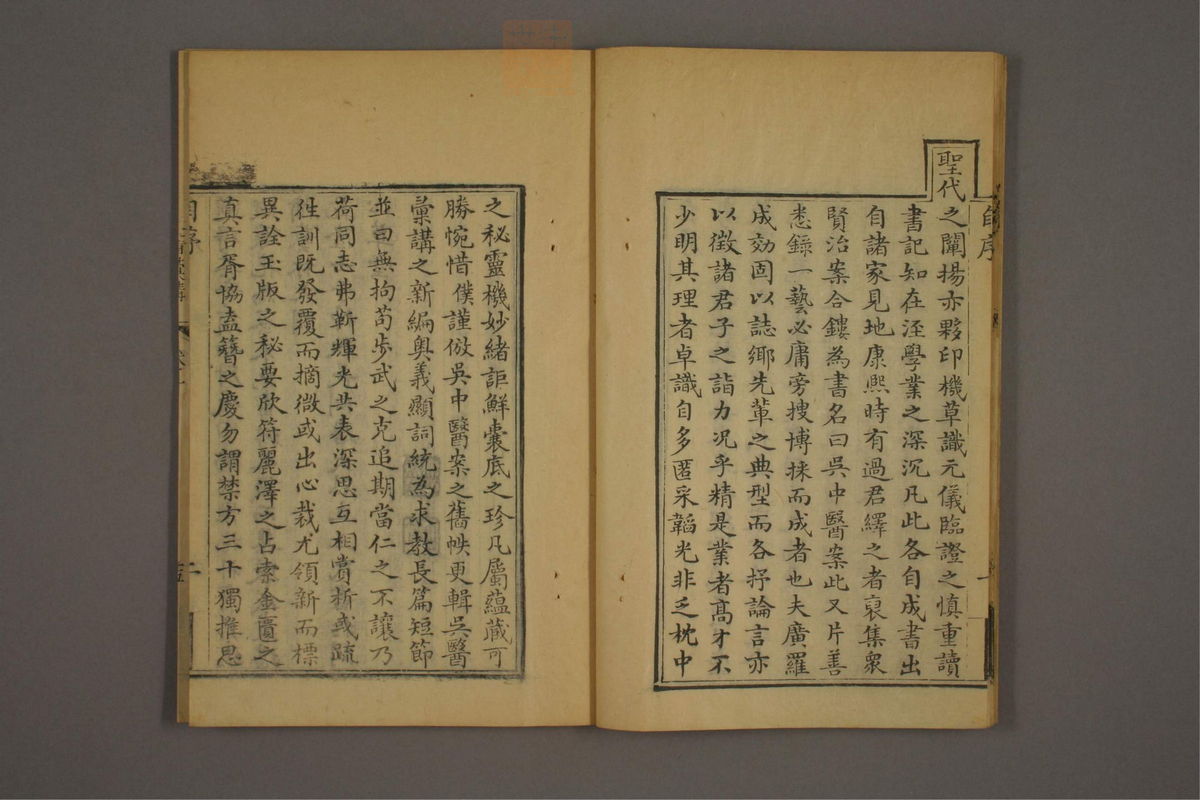 聖代之闡揚亦夥印機草識元儀臨證之慎重讀
書記知在涇學業之深沉凡此各自成書出
自諸家見地康熙時有過君繹之者裒集衆
賢治案合鏤為書名曰吳中醫案此又片善
悉錄一藝必庸旁搜博採而成者也夫廣羅
成効固以誌鄉先輩之典型而各抒論言亦
以徵諸君子之詣力况乎精是業者高才不
少明其理者卓識自多匿采韜光非乏枕中
之秘靈機妙緒詎鮮囊底之珍凡屬蘊藏可
勝惋惜僕謹倣吳中醫案之舊帙更輯吳醫
彙講之新編奥義顯詞統為求教長篇短節
並曰無拘苟步武之克追期當仁之不讓乃
荷同志弗靳輝光共表深思互相賞析或疏
徃訓既發覆而摘微或出心裁尤領新而標
異詮玉版之秘要欣符麗澤之占索金匱之
真言胥協盍簪之慶勿謂禁方三十獨推思
自序